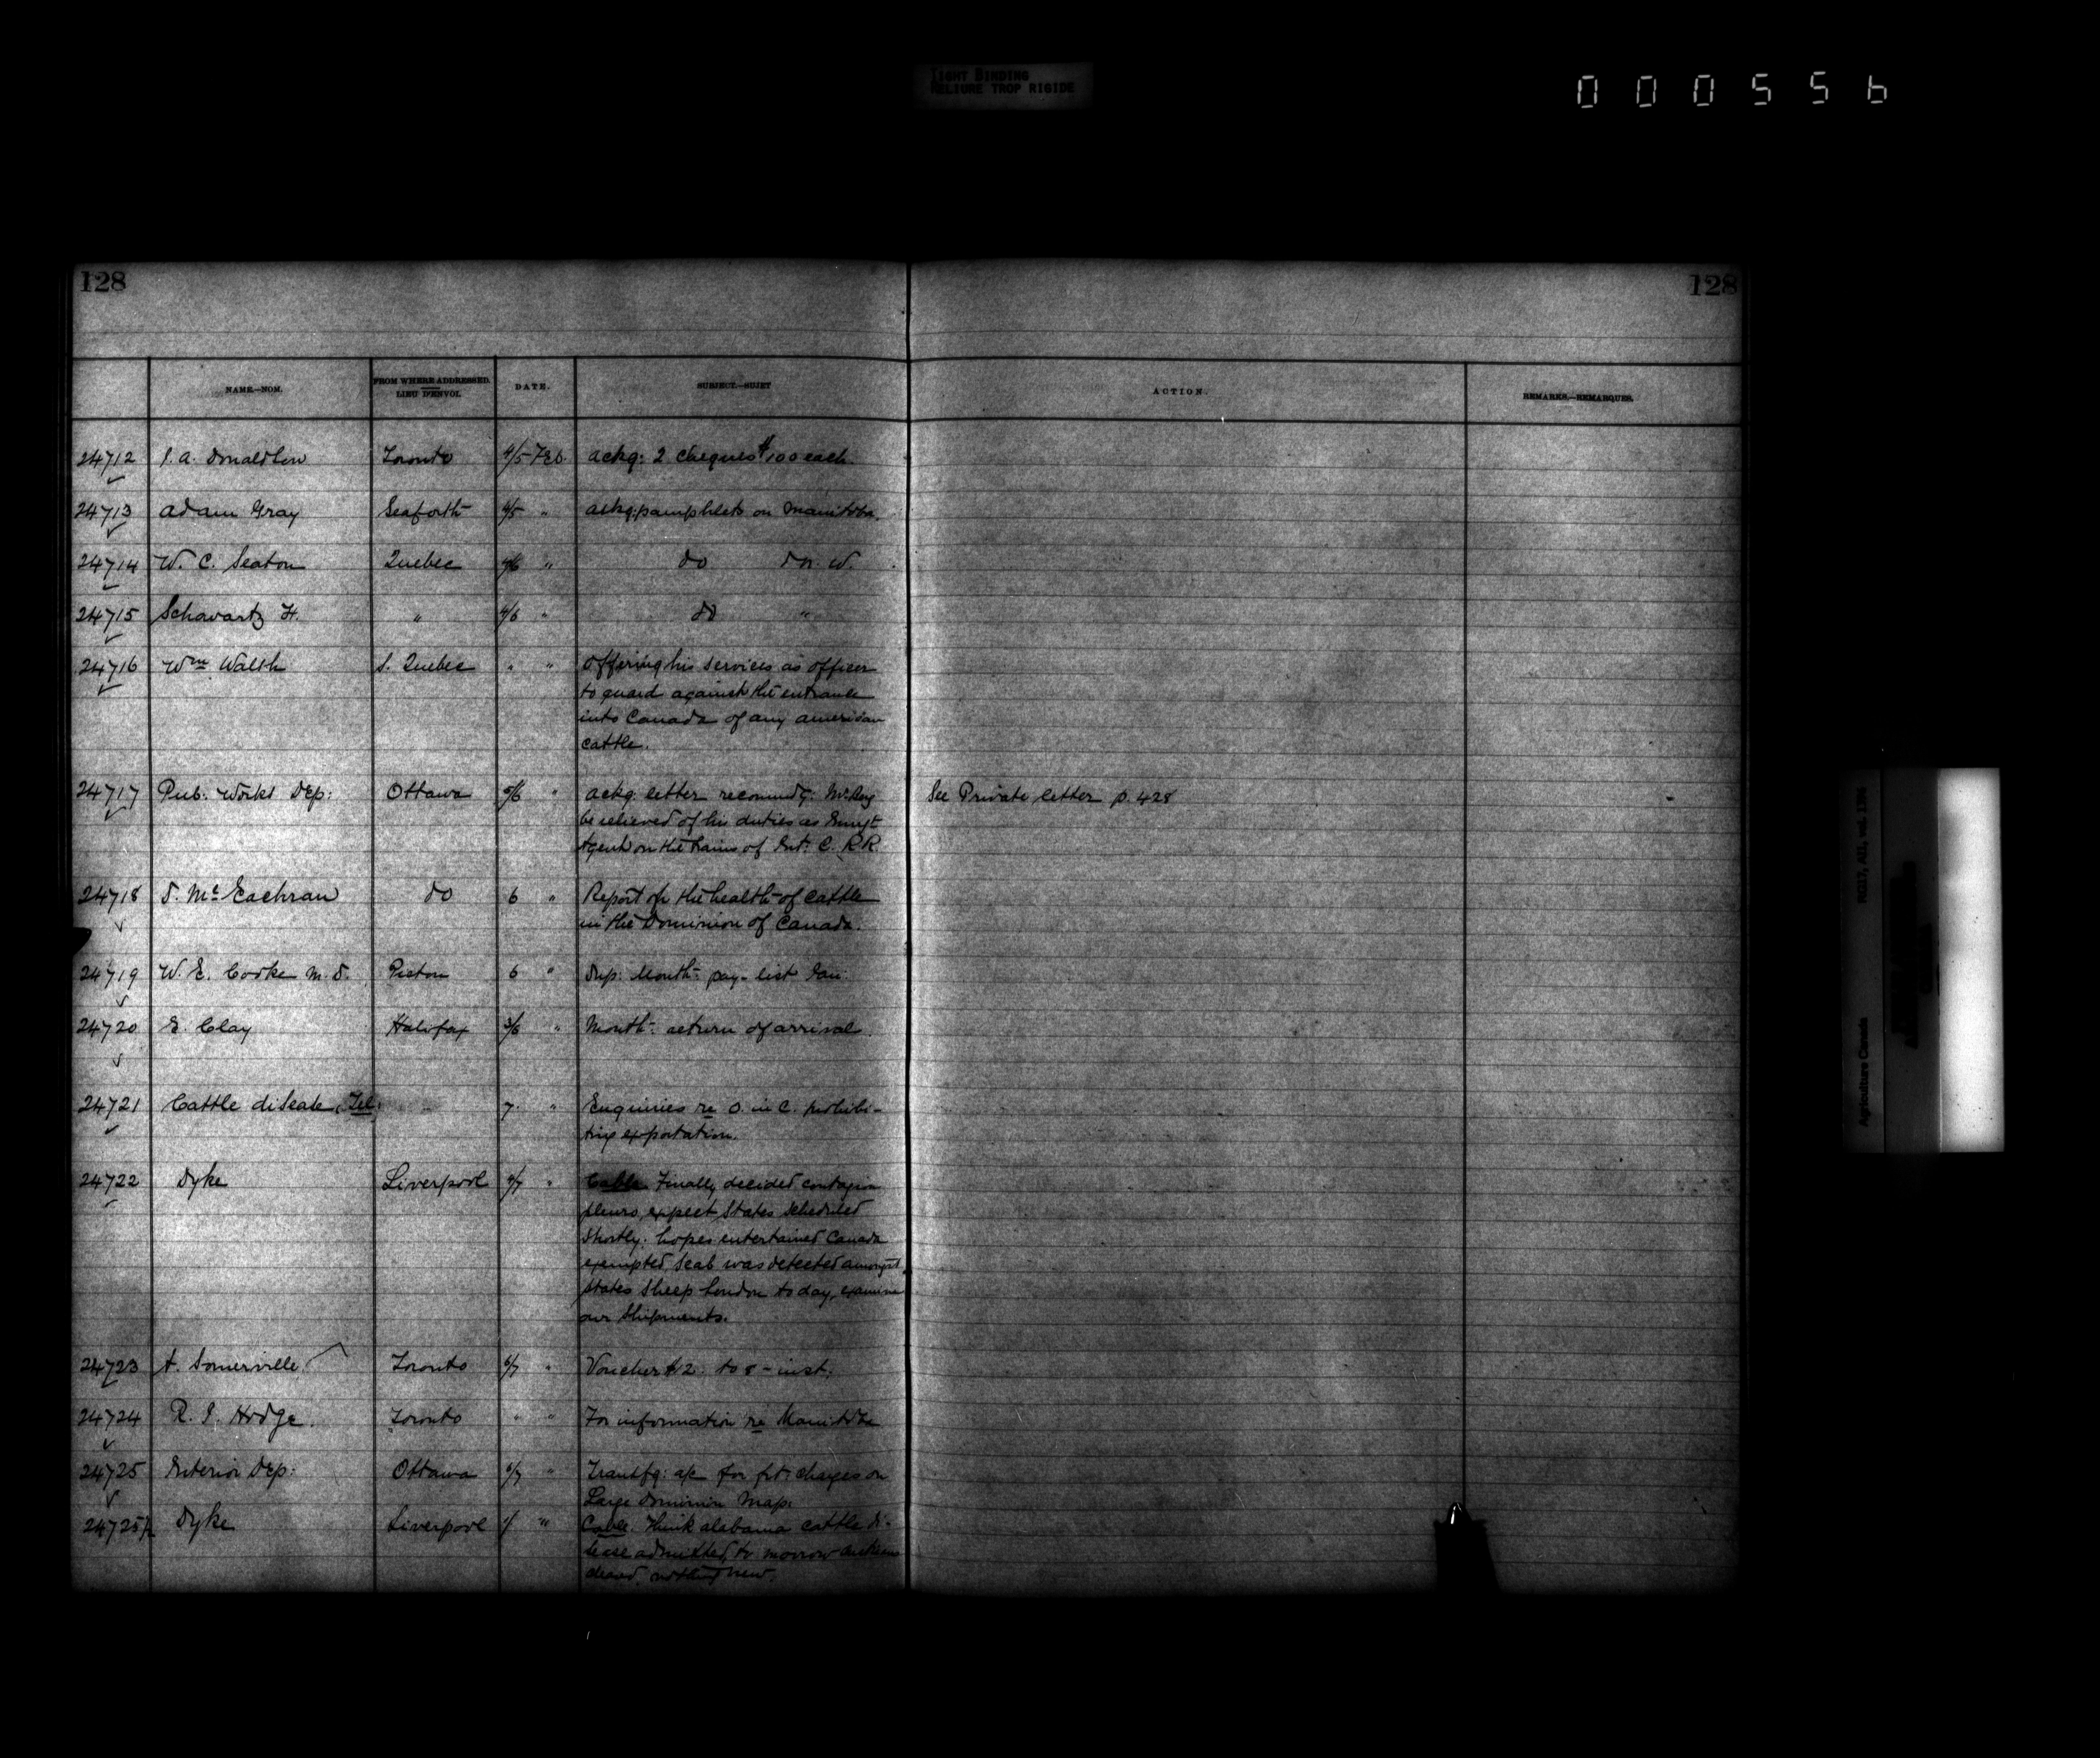 TIGHT BINDING
RELIURE TROP RIGIDE
000556
128 128
NAME.—NOM. FROM WHERE ADDRESSED. LIEU D'ENVOI. DATE. SUBJECT.—SUJET ACTION. REMARKS.—REMARQUES.
24712 J. A. Donaldson Toronto 4/5 Feb. ackg: 2 cheques $100 each.
24713 Adam Gray Seaforth 4/5 " ackg: pamphlets on Manitoba.
24714 W. C. Seaton Quebec 4/6 " do do N. W.
24715 Schwartz H. " 4/6 " do "
24716 Wm Walsh S. Quebec " " Offering his services as officer
to guard against the entrance
into Canada of any american
cattle.
24717 Pub. Works Dep: Ottawa 5/6 " ackg. letter recommdg: Mr. Roy See Private letter p. 428
be relieved of his duties as Emigt
Agent on the trains of Int: C. R R
24718 D. McEachran do 6 " Report on the health of cattle
in the Dominion of Canada.
24719 W. E. Cooke M. D. Pictou 6 " Dup: Month: pay-list Jan.
24720 E. Clay Halifax 3/6 " Month: return of arrival.
24721 Cattle disease, Tel. 7 " Enquiries re O. in C. prohibi-
ting exportation.
24722 Dyke Liverpool 4/7 " Cable Finally decided contagion
pleuro, expect States scheduled
shortly. hopes entertained Canada
exempted, scab was detected amongst
States sheep London to day, examine
our shipments.
24723 A. Somerville Toronto 6/7 " Voucher #2. to 8 - inst.
24724 R. J. Hodge. Toronto " " For information re Manitoba
24725 Interior Dep: Ottawa 6/7 " Transfg: a/c for frt: charges on
Large Dominion Map.
24725½ Dyke Liverpool " Cable. Think alabama cattle di-
sease admitted, to morrow
nothing new.
Agriculture Canada RG17, AI1, vol. 1386